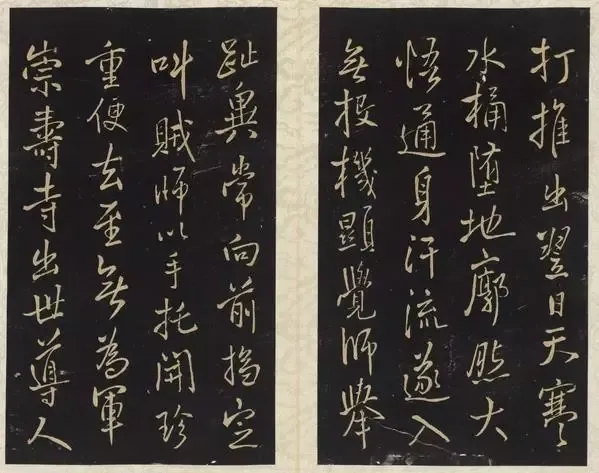 打推出翌日天寒
水桶墮地廓然大
悟通身汗流遂入
投機顯覺師舉
趾異常向前搊定
叫賊師以手托開珍
重便去至無為軍
崇壽寺出世導人